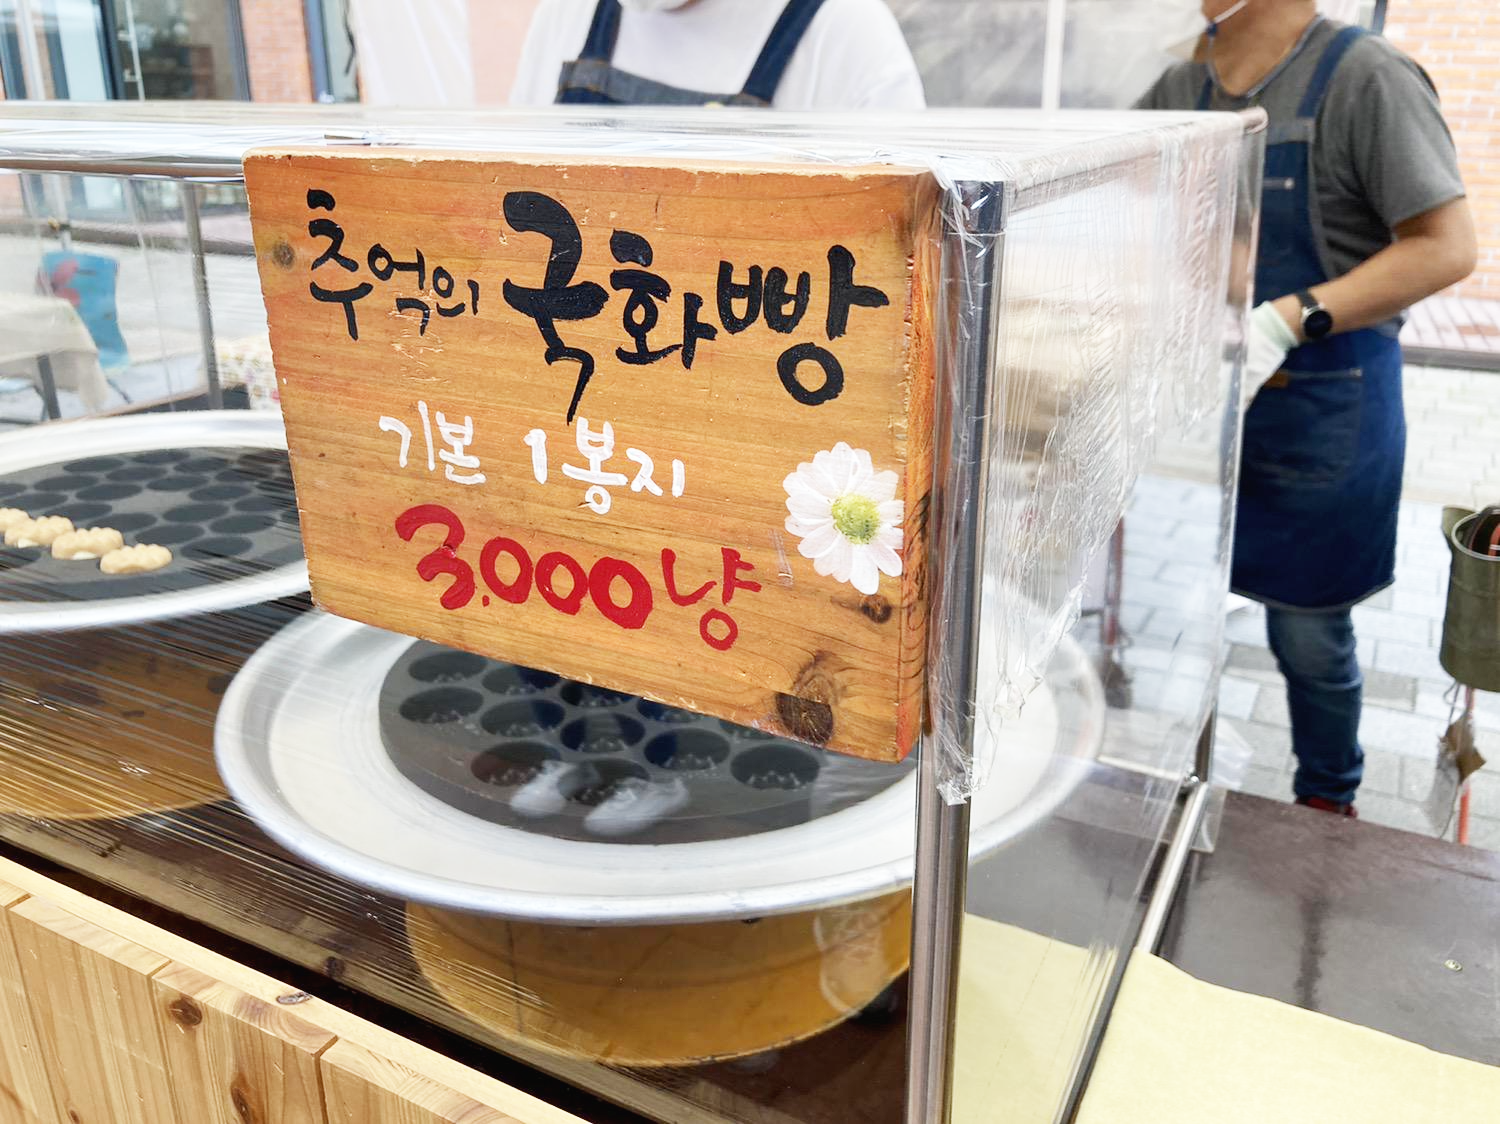 추억의 국화빵
기본 1봉지
3.000냥